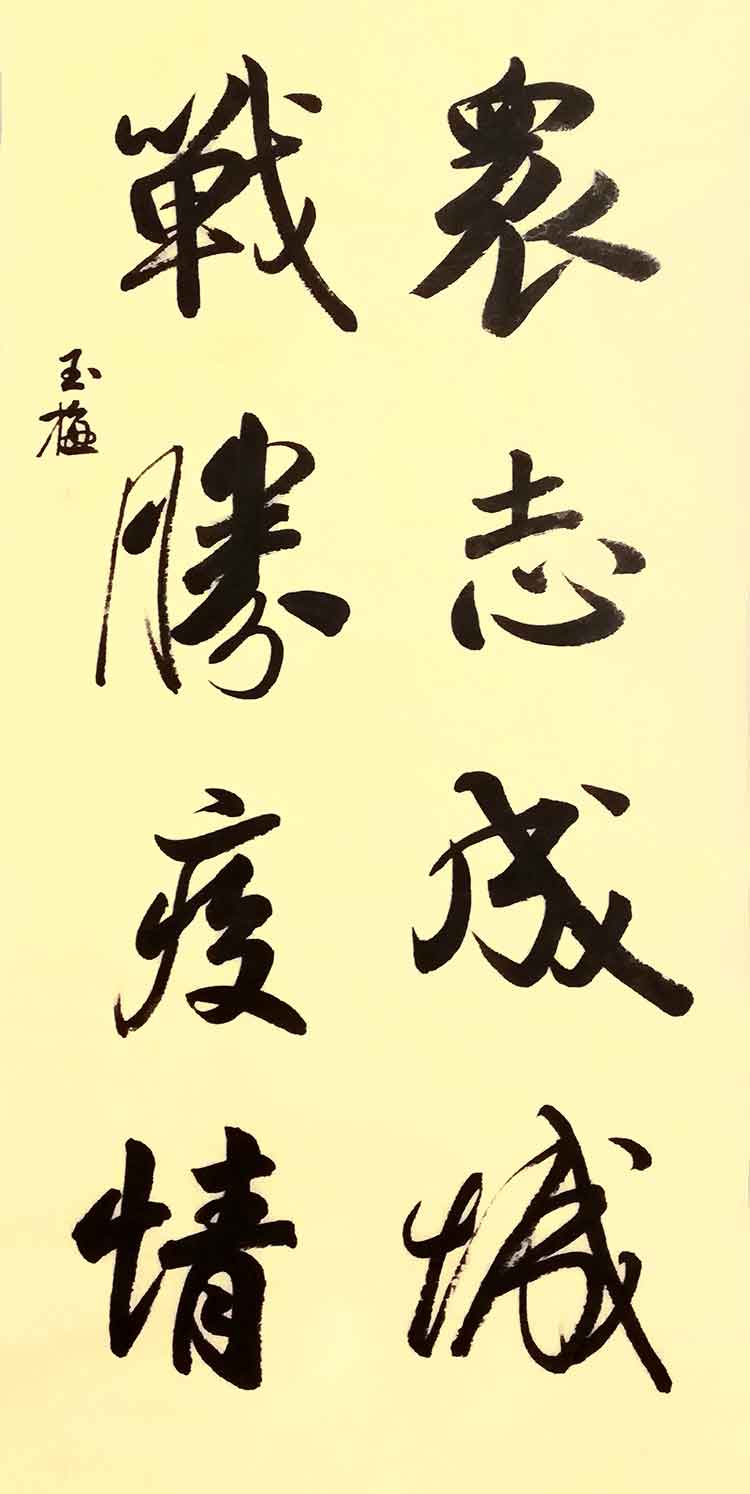 眾志成城
戰勝疫情
玉梅